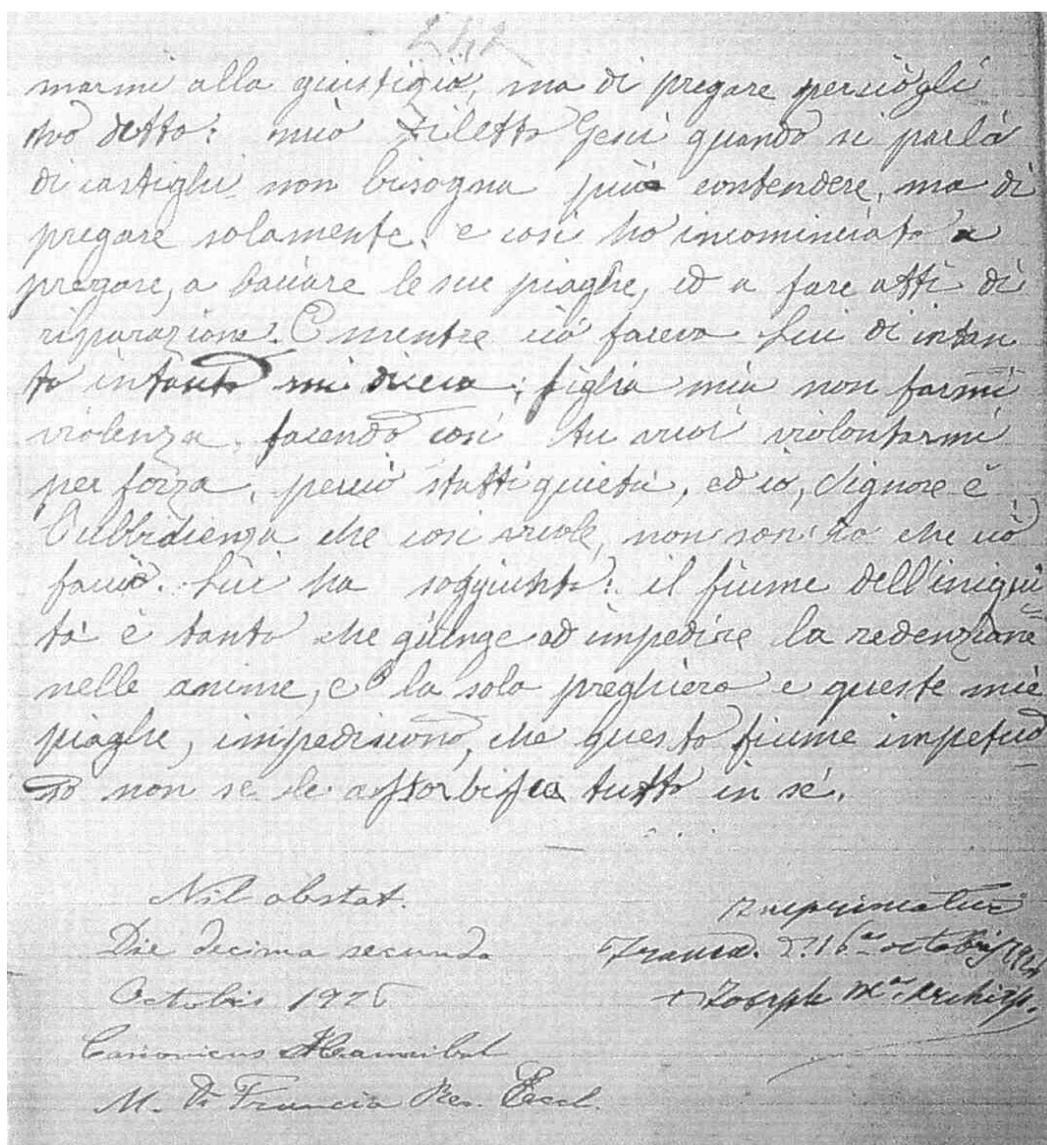 242
marmi alla giustizia, ma di pregare perciò gli
ho detto: mio Diletto Gesù quando si parla
di castighi non bisogna più contendere, ma di
pregare solamente. e così ho incominciato a
pregare, a baciare le sue piaghe, ed a fare atti di
riparazione. E mentre ciò facevo Lui di intan
to intanto mi diceva: figlia mia non farmi
violenza, facendo così tu vuoi violontarmi
per forza, perciò statti quieta, ed io, Signore è
l'ubbidienza che così vuole, non son io che ciò
faccio. Lui ha soggiunto: il fiume dell'iniqui
tà è tanto che giunge ad impedire la redenzione
nelle anime, e la sola preghiera e queste mie
piaghe, impediscono, che questo fiume impetuo
so non se le assorbisca tutto in sé.
Nil obstat.
Die decima secunda
Octobris 1926
Canonicus Hannibal
M. Di Francia Rev. Eccl.
Imprimatur
16 octobris 1926
+ Joseph M. Archiep.